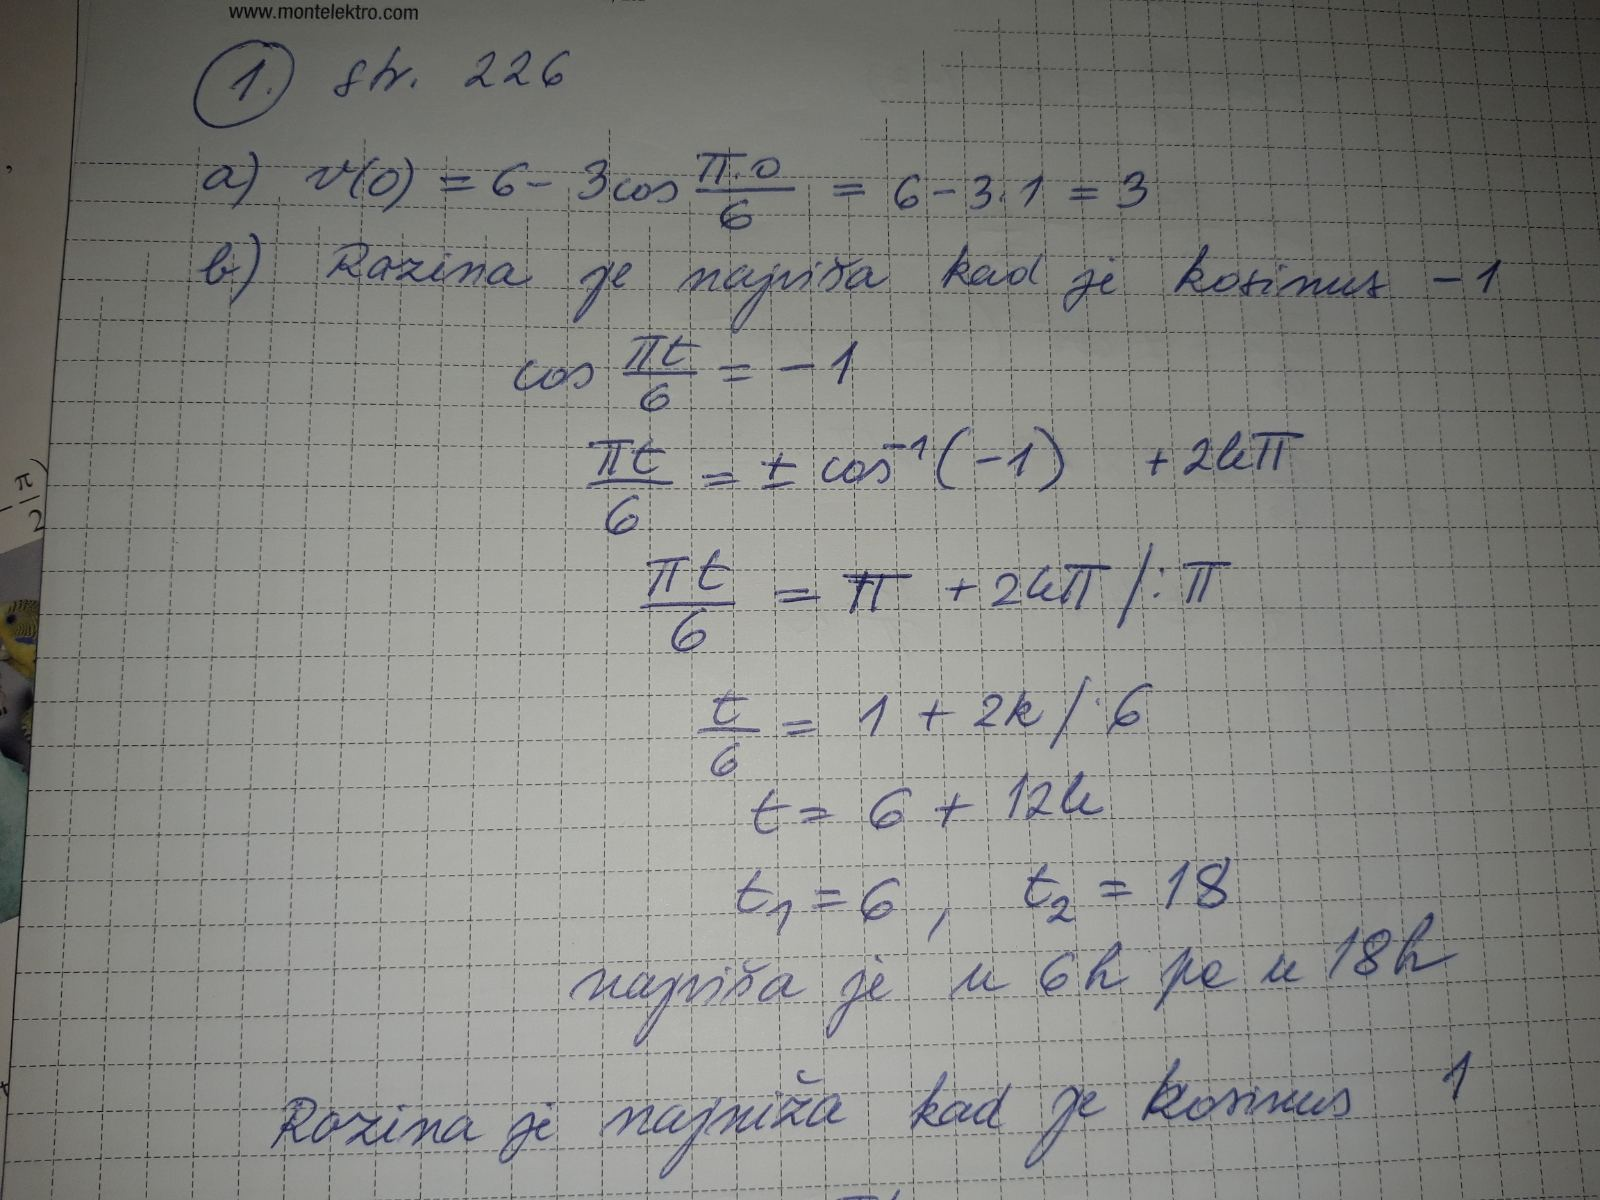 www.montelektro.com
1. str. 226
a) v(0) = 6 - 3cos π·0/6 = 6 - 3·1 = 3
b) Razina je najviša kad je kosinus -1
cos πt/6 = -1
πt/6 = ± cos⁻¹(-1) + 2kπ
πt/6 = π + 2kπ /:π
t/6 = 1 + 2k /·6
t = 6 + 12k
t₁ = 6, t₂ = 18
najviša je u 6h pa u 18h
Razina je najniža kad je kosinus 1
-π/2)